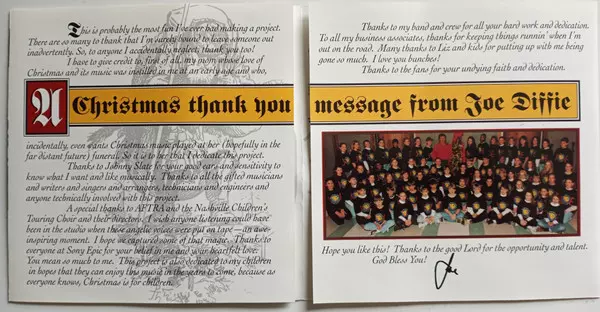 This is probably the most fun I've ever had making a project.
There are so many to thank that I'm surely bound to leave someone out
inadvertently. So, to anyone I accidentally neglect, thank you too!
I have to give credit to, first of all, my mom whose love of
Christmas and its music was instilled in me at an early age and who,
A Christmas thank you
incidentally, even wants Christmas music played at her (hopefully in the
far distant future) funeral. So it is to her that I dedicate this project.
Thanks to Johnny Slate for your good ears and sensitivity to
know what I want and like musically. Thanks to all the gifted musicians
and writers and singers and arrangers, technicians and engineers and
anyone technically involved with this project.
A special thanks to AFTRA and the Nashville Children's
Touring Choir and their directors. I wish anyone listening could have
been in the studio when these angelic voices were put on tape — an awe-
inspiring moment. I hope we captured some of that magic. Thanks to
everyone at Sony Epic for your belief in me and your heartfelt love.
You mean so much to me. This project is also dedicated to my children
in hopes that they can enjoy this music in the years to come, because as
everyone knows, Christmas is for children.
Thanks to my band and crew for all your hard work and dedication.
To all my business associates, thanks for keeping things runnin' when I'm
out on the road. Many thanks to Liz and kids for putting up with me being
gone so much. I love you bunches!
Thanks to the fans for your undying faith and dedication.
message from Joe Diffie
Hope you like this! Thanks to the good Lord for the opportunity and talent.
God Bless You!
Joe